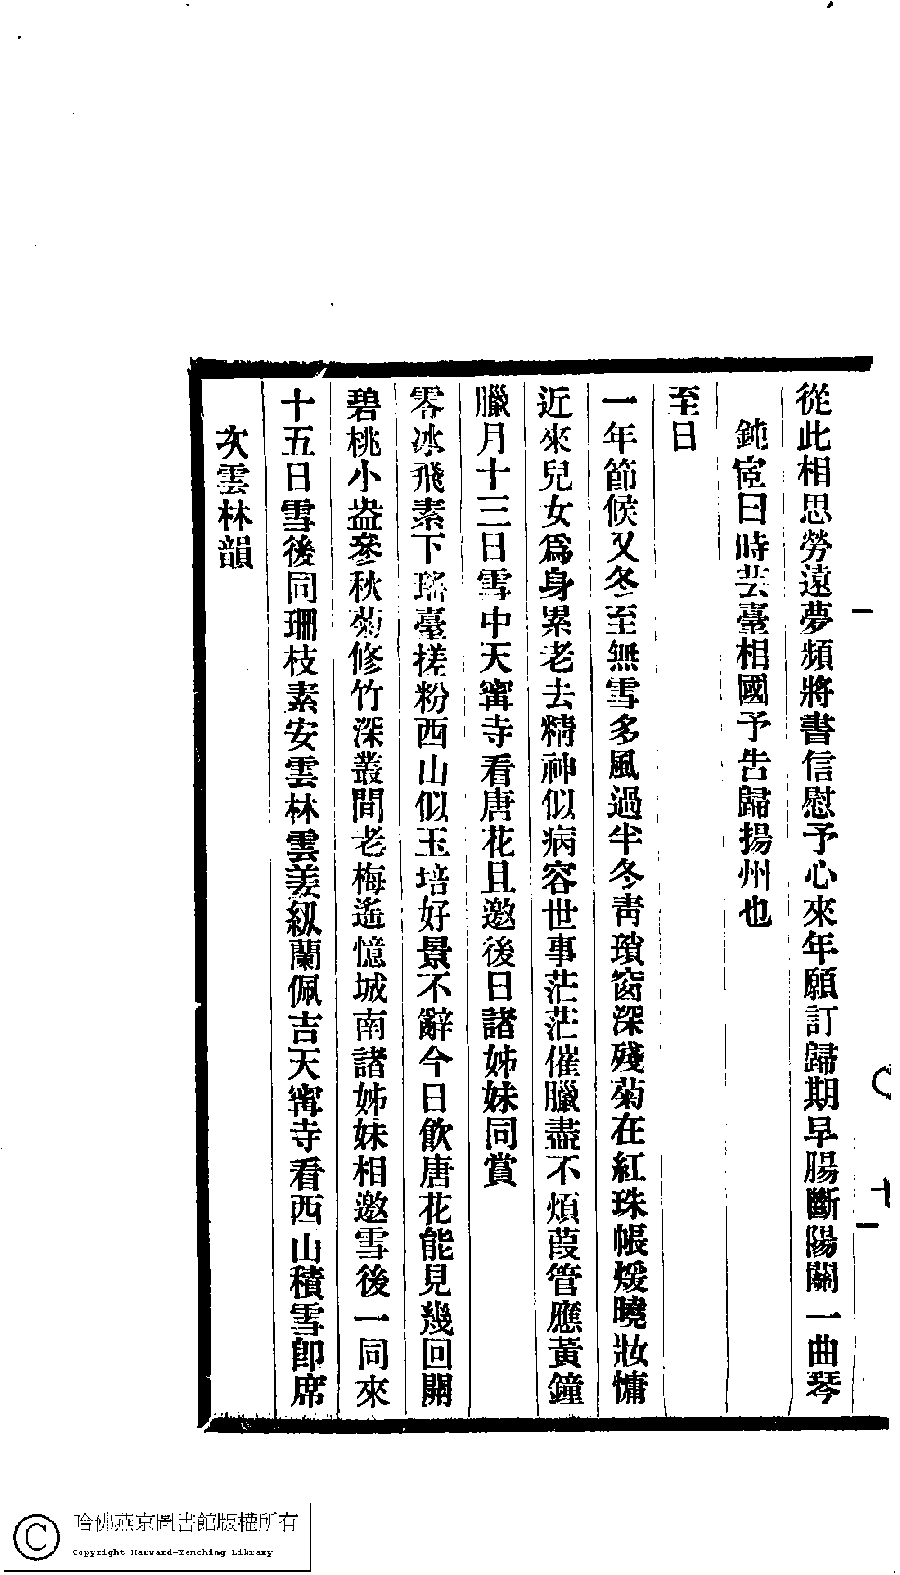 從此相思勞遠夢頻將書信慰予心來年願訂歸期早腸斷陽關一曲琴
鈍宧曰時芸臺相國予告歸揚州也
至日
一年節候又冬至無雪多風過半冬靑瑣窗深殘菊在紅珠帳煖曉妝慵
近來兒女爲身累老去精神似病容世事茫茫催臘盡不煩葭管應黃鐘
臘月十三日雪中天寗寺看唐花且邀後日諸姊妹同賞
零冰飛素下瑤臺搓粉西山似玉培好景不辭今日飮唐花能見幾回開
碧桃小盎參秋菊修竹深叢間老梅遙憶城南諸姊妹相邀雪後一同來
十五日雪後同珊枝素安雲林雲姜紉蘭佩吉天寗寺看西山積雪卽席
次雲林韻
哈佛燕京圖書館版權所有
Copyright Harvard-Yenching Library